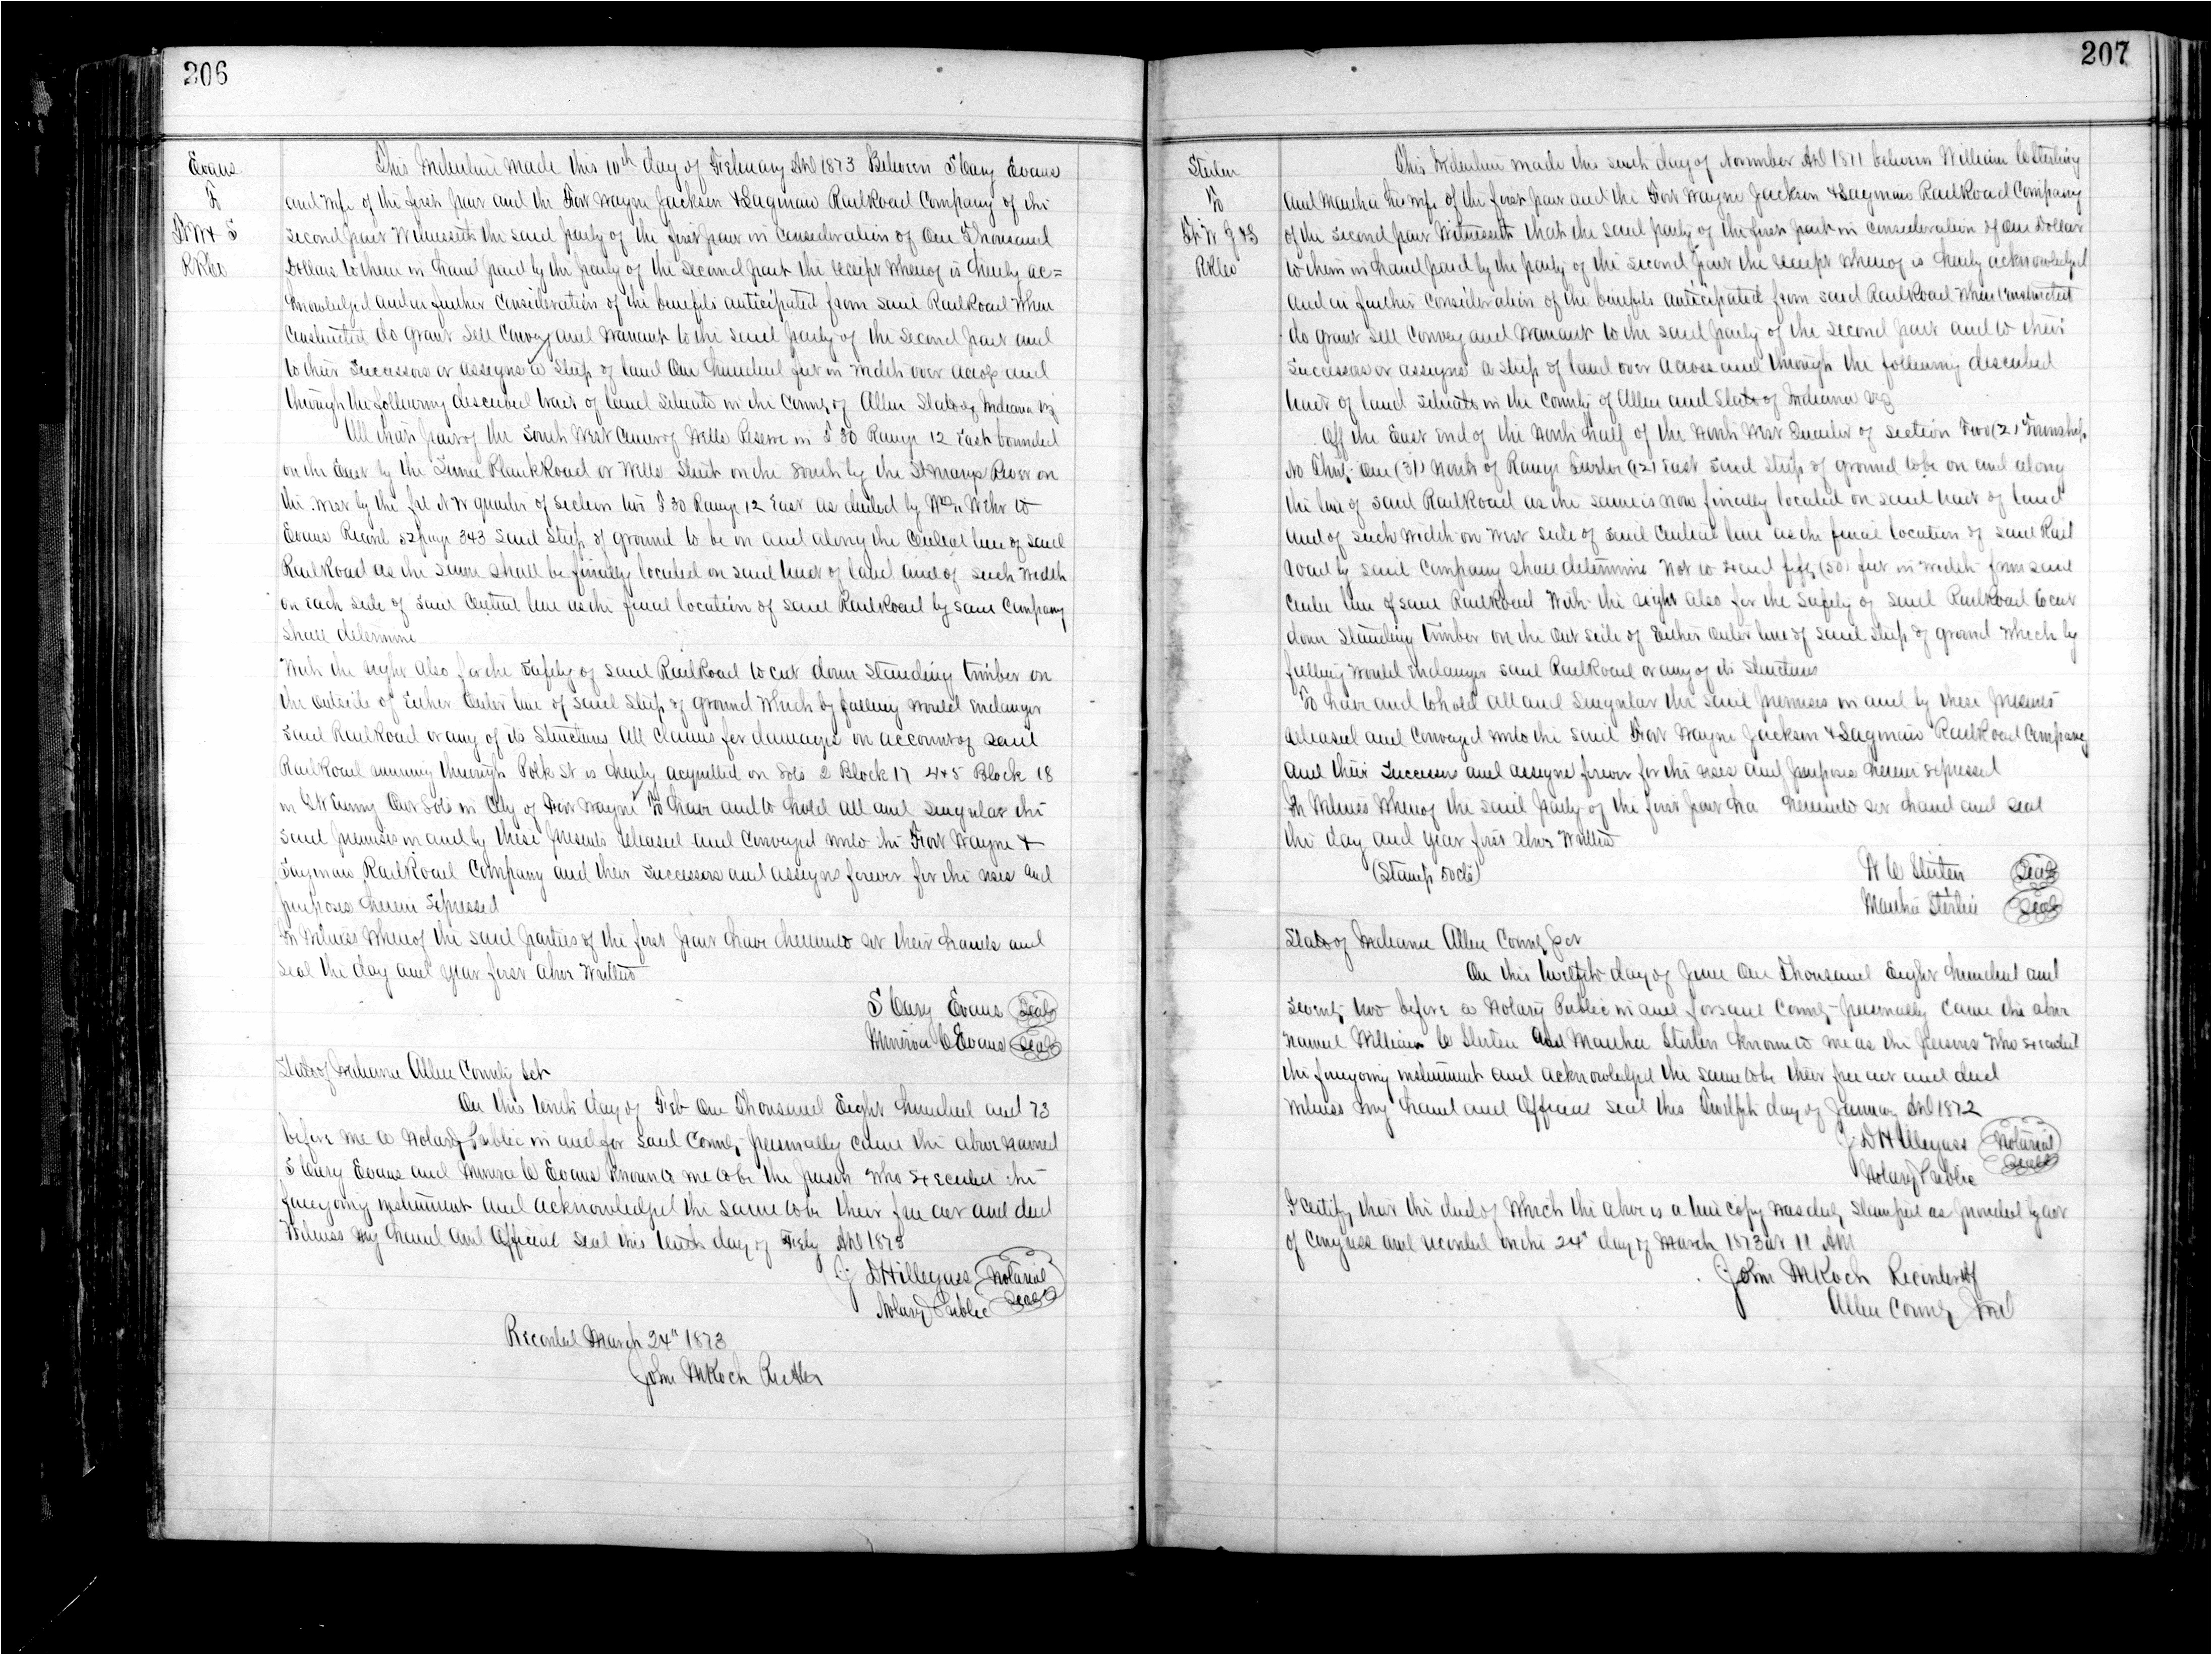 206
Evans
To
FtW & S
RRCo
This Indenture made this 10th day of February AD 1873 Between S Cary Evans
and wife of the first part and the Fort Wayne Jackson & Saginaw RailRoad Company of the
second part Witnesseth the said party of the first part in consideration of One Thousand
Dollars to them in hand paid by the party of the second part the receipt whereof is hereby ac=
knowledged and in further consideration of the benefits anticipated from said RailRoad when
Constructed do grant sell Convey and Warrant to the said party of the second part and
to their successors or assigns a strip of land One hundred feet in width over across and
through the following described tract of land situate in the County of Allen State of Indiana viz
All that part of the South West Corner of Wells Reserve in T 30 Range 12 East bounded
on the East by the Plank Road or Wells Street on the South by the St Marys River on
the West by the N W quarter of section two T 30 Range 12 East as deeded by to
Evans Record 52 page 343 said strip of ground to be on and along the Central line of said
RailRoad as the same shall be finally located on said tract of land and of such width
on each side of said Central line as the final location of said RailRoad by said Company
shall determine
With the right also for the safety of said RailRoad to cut down standing timber on
the outside of either outer line of said strip of ground which by falling would endanger
said RailRoad or any of its structures All claims for damages on account of said
RailRoad running through Polk St is hereby acquitted on Lots 2 Block 17 4 & 5 Block 18
in Ewing Out Lots in City of Fort Wayne To have and to hold all and singular the
said premises in and by these presents released and conveyed unto the Fort Wayne &
Saginaw RailRoad Company and their successors and assigns forever for the uses and
purposes herein Expressed
In Witness Whereof the said parties of the first part have hereunto set their hands and
seal the day and year first above written
S Cary Evans Seal
Minerva C Evans Seal
State of Indiana Allen County Sct
On this tenth day of Feb One Thousand Eight hundred and 73
before me a Notary Public in and for said County personally came the above named
S Cary Evans and Minerva C Evans known to me to be the person who executed the
foregoing instrument and acknowledged the same to be their free act and deed
Witness my hand and Official seal this tenth day of Feby AD 1873
J D Hillegass Notarial
Notary Public Seal
Recorded March 24" 1873
John M Koch
207
To
Ft W J & S
RRCo
This Indenture made this sixth day of November AD 1871 between William C
and Martha his wife of the first part and the Fort Wayne Jackson & Saginaw RailRoad Company
of the second part Witnesseth that the said party of the first part in consideration of One Dollar
to them in hand paid by the party of the second part the receipt whereof is hereby acknowledged
and in further consideration of the benefits anticipated from said RailRoad when Constructed
do grant sell Convey and Warrant to the said party of the second part and to their
successors or assigns a strip of land over across and through the following described
tract of land situate in the County of Allen and State of Indiana viz
Off the East end of the North half of the North West Quarter of section Two (2) Township
No Thirty One (31) North of Range Twelve (12) East said strip of ground to be on and along
the line of said RailRoad as the same is now finally located on said tract of land
and of such width on West side of said Central line as the final location of said Rail
road by said Company shall determine Not to exceed fifty (50) feet in width from said
Center line of said RailRoad With the right also for the safety of said RailRoad to cut
down standing timber on the out side of either outer line of said strip of ground which by
falling would endanger said RailRoad or any of its structures
To have and to hold all and singular the said premises in and by these presents
released and conveyed unto the said Fort Wayne Jackson & Saginaw RailRoad Company
and their successors and assigns forever for the uses and purposes herein expressed
In Witness Whereof the said party of the first part ha hereunto set hand and seal
the day and year first above written
(Stamp 50cts)
W C Seal
Martha Seal
State of Indiana Allen County Sct
On this twelfth day of June One Thousand Eight hundred and
seventy two before a Notary Public in and for said County personally came the above
named William C and Martha known to me as the persons who executed
the foregoing instrument and acknowledged the same to be their free act and deed
Witness my hand and Official seal this Twelfth day of January AD 1872
J D Hillegass Notarial
Notary Public Seal
I certify that the deed of which the above is a true copy was duly stamped as provided by act
of Congress and recorded on the 24" day of March 1873 at 11 AM
John M Koch Recorder of
Allen County Ind